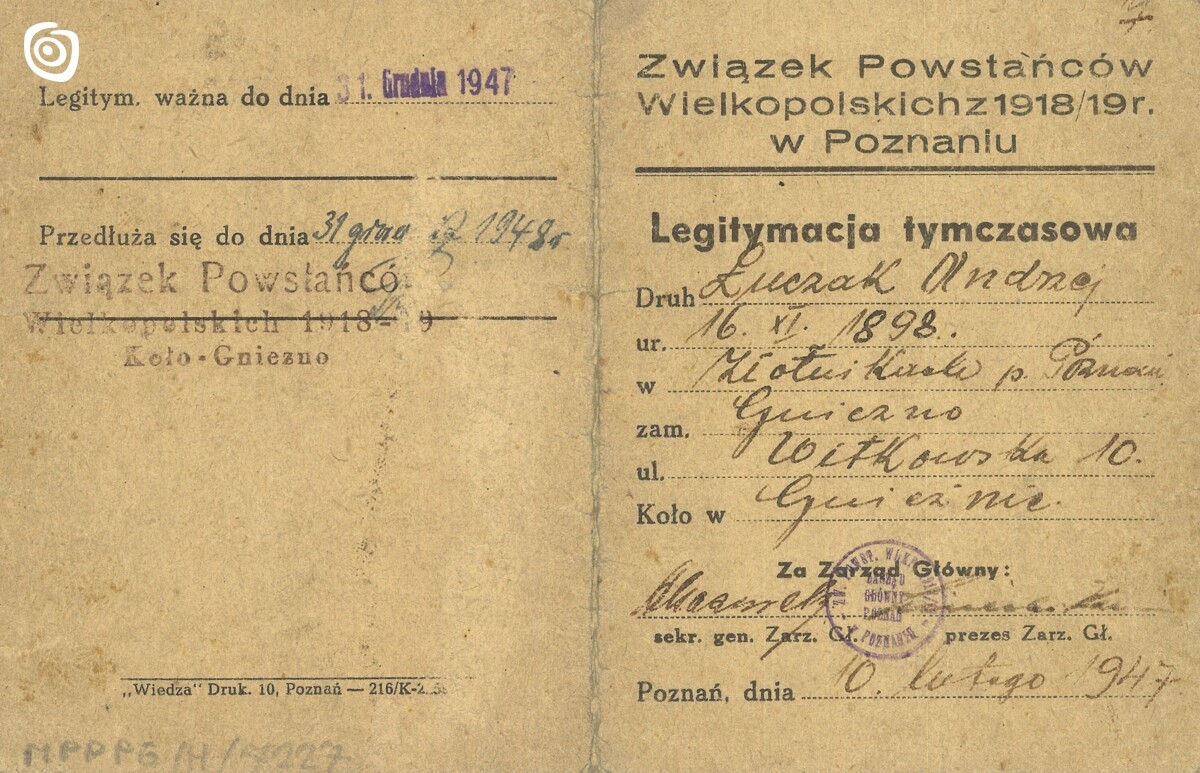 Legitym. ważna do dnia 31. Grudnia 1947
Przedłuża się do dnia 31 1948r
Związek Powstańcó
Wielkopolskich 1918-19
Koło-Gniezno
„Wiedza” Druk. 10, Poznań — 216/K-2
MPPPG/H/
Związek Powstańców
Wielkopolskich z 1918/19 r.
w Poznaniu
Legitymacja tymczasowa
Druh Łuczak Andrzej
ur. 16. XI. 1898.
w p. Poznań
zam. Gniezno
ul. Witkowska 10.
Koło w Gnieźnie.
Za Zarząd Główny:
ZARZĄD
GŁÓWNY
POZNAŃ
W POZNANIU
sekr. gen. Zarz. Gł. prezes Zarz. Gł.
Poznań, dnia 10. lutego 1947